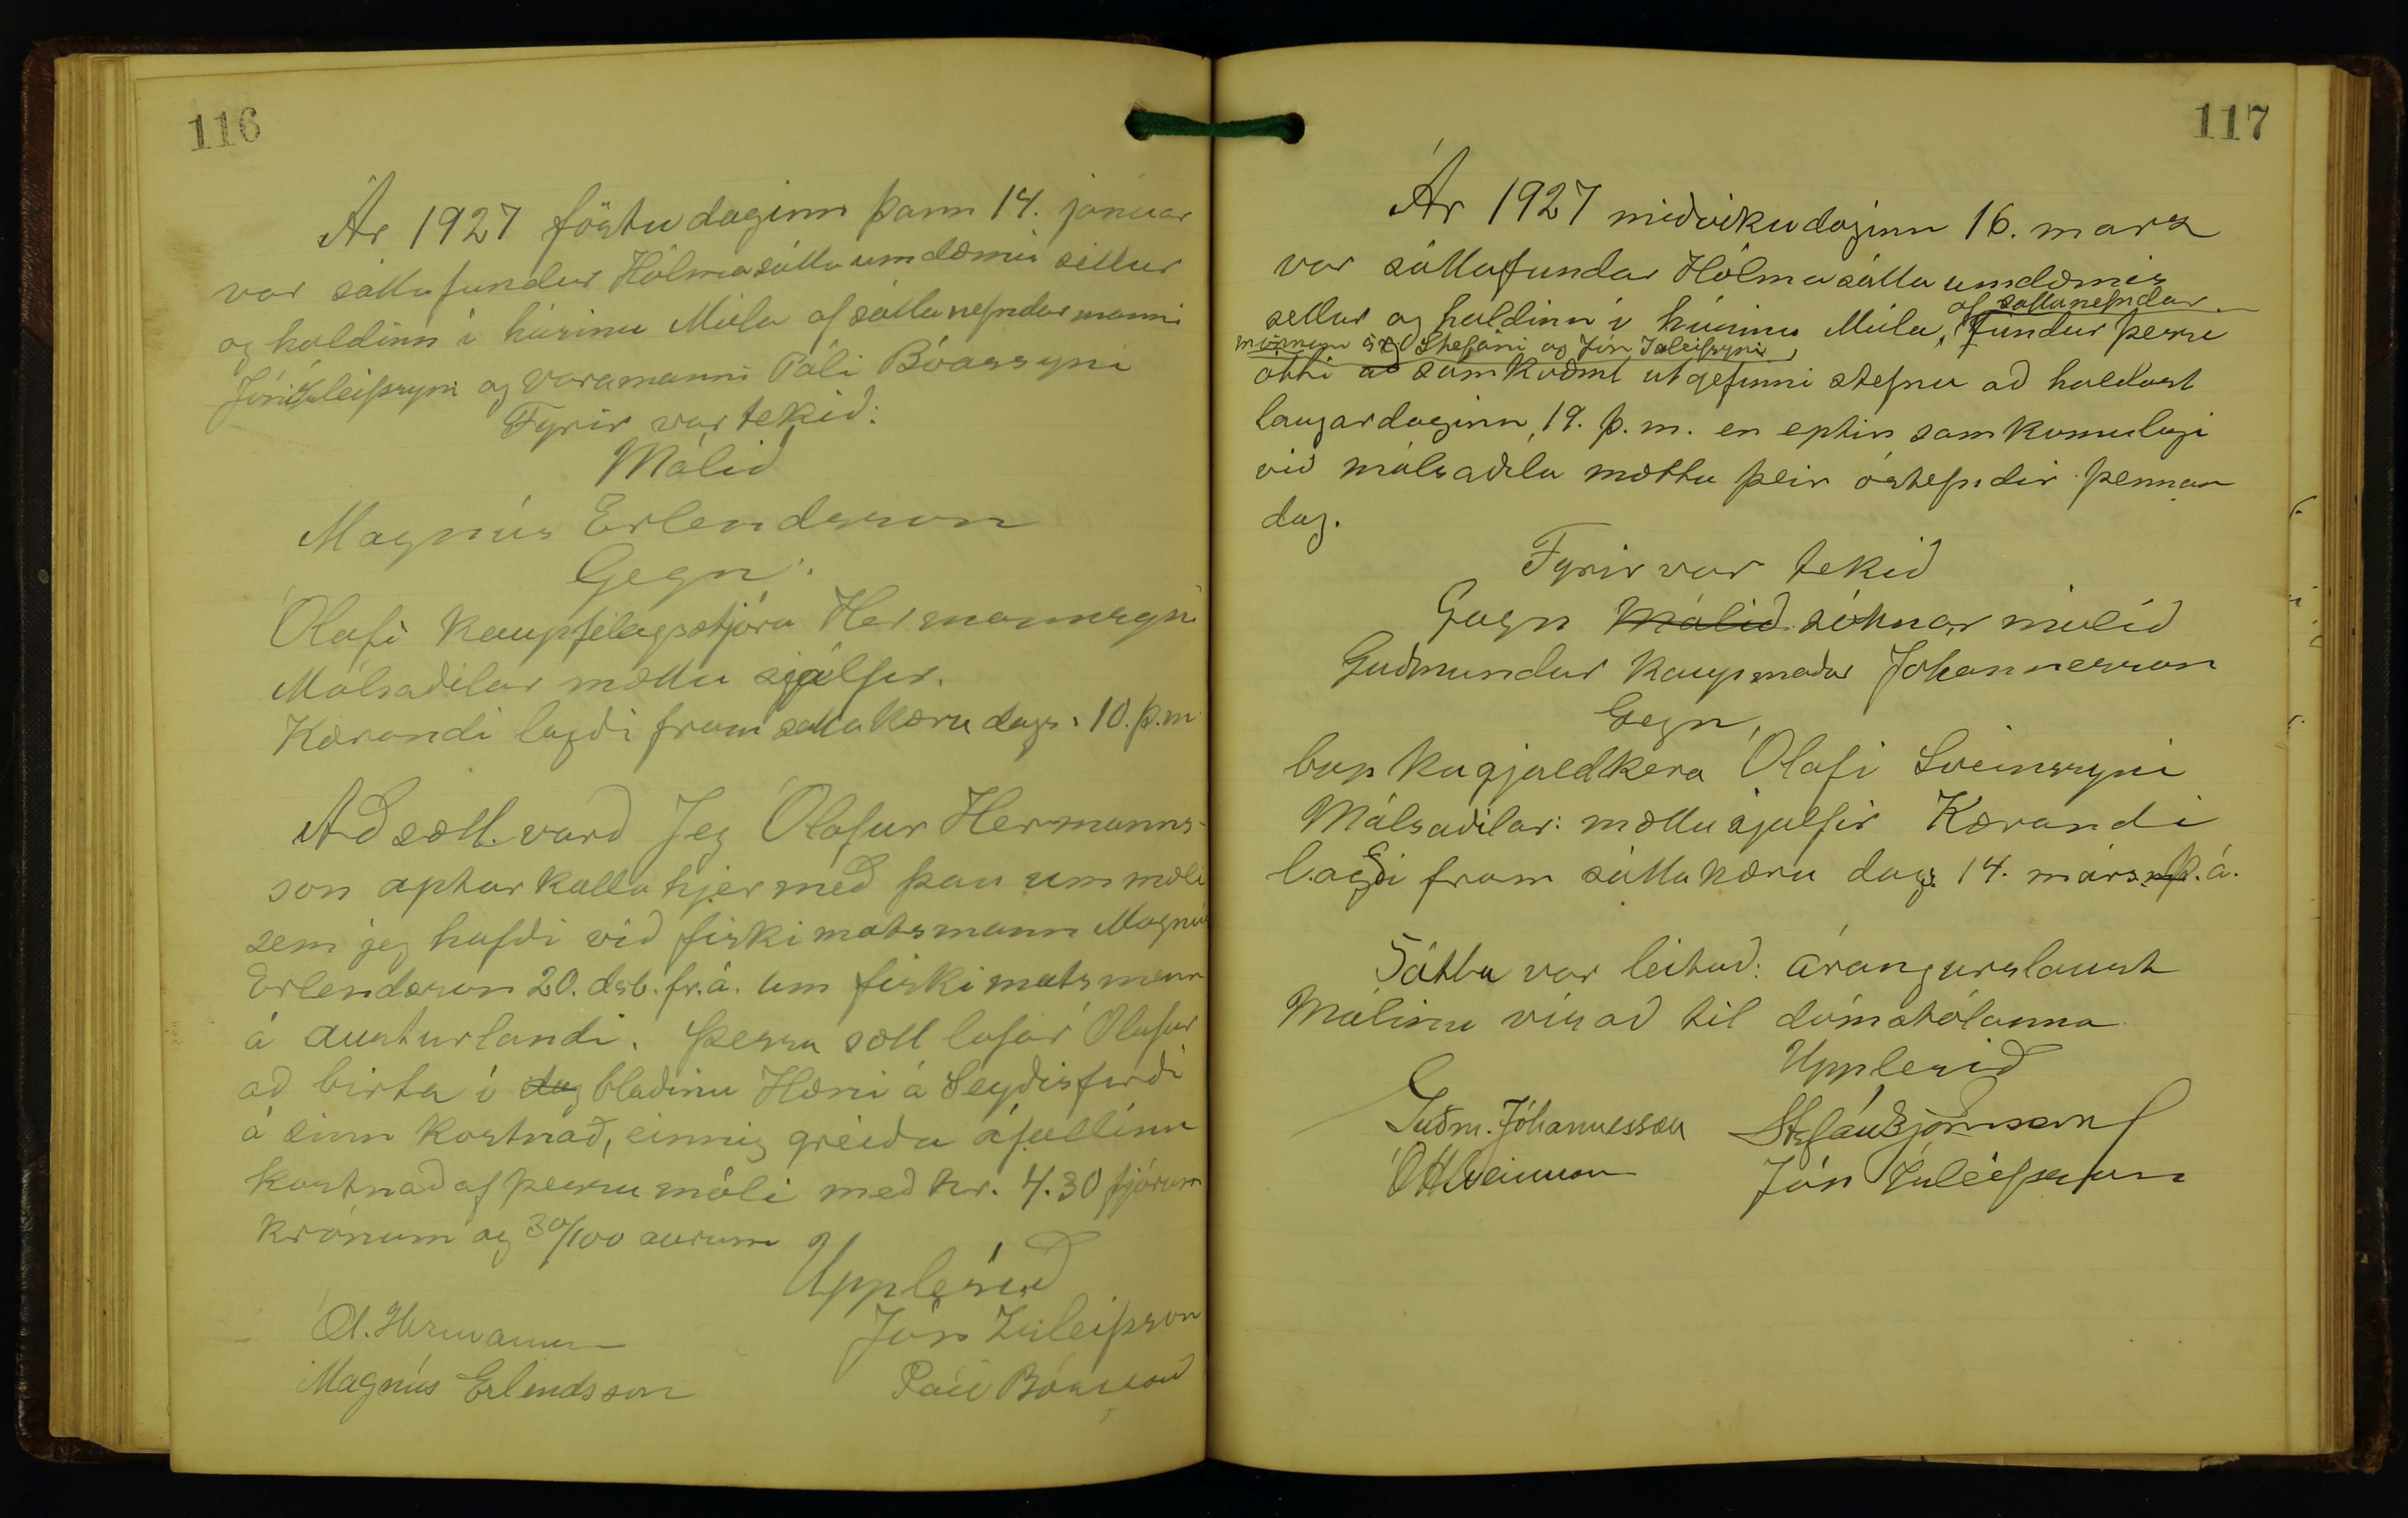 116
Ár 1927 föstudaginn þann 14. januar
var sáttafundur Hólmasáttaumdæmis settur
og haldinn í húsinu Múla af sáttanefndarmanni
Jóni Ísleifssyni og varamanni Páli Bóassyni
Fyrir var tekið:
Málið
Magnús Erlendsson
Gegn:
Ólafi kaupfélagsstjóra Hermannssyni
Málsaðilar mættu sjálfir.
Kærandi lagði fram sáttakæru dags. 10. þ.m.
Að sætt varð Jeg Ólafur Hermanns-
son apturkalla hjer með þau ummæli
sem jeg hafði við fiskimatsmann Magnús
Erlendsson 20. dsb. fr.á. um fiskimatsmenn
á austurlandi. Þessa sætt lofar Ólafur
að birta í dag blaðinu Hæni á Seyðisfirði
á sinn kostnað, einnig greiða áfallinn
kostnað af þessu máli með kr. 4.30 fjórum
krónum og 30/100 aurum
Upplesið
Ól. Hermannsson
Jón Ísleifsson
Magnús Erlendsson
Páll Bóasson
117
Ár 1927 miðvikudaginn 16. mars
var sáttafundar Hólmasátta umdæmis
settur og haldinn í húsinu Múla, af sáttanefndar
mönnum Stefáni og Jón Ísleifssyni, Fundur þessi
átti að samkvæmt útgefinni stefnu að haldast
laugardaginn, 19. þ.m. en eptir samkomulagi
við málsaðila mættu þeir óstefndir þennan
dag.
Fyrir var tekið
Gagn Málið sóknar málið
Guðmundur kaupmaður Jóhannesson
Gegn,
bankagjaldkera Ólafi Sveinssyni
Málsaðilar: mættu sjálfir Kærandi
lagði fram sáttakæru dags. 14. mars. þ.á.
Sátta var leitað: árangurslaust
Málinu vísað til dómstólanna
Upplesið
Guðm. Jóhannesson
Stefán Björnsson
Ó H Sveinsson
Jón Ísleifsson